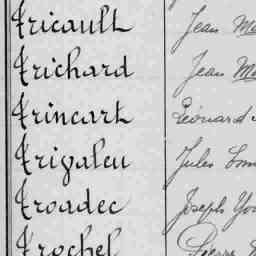 Tricault Jean
Trichard Jean
Trincart Léonard
Trigaleu Jules
Troadec Joseph
Trochel Pierre